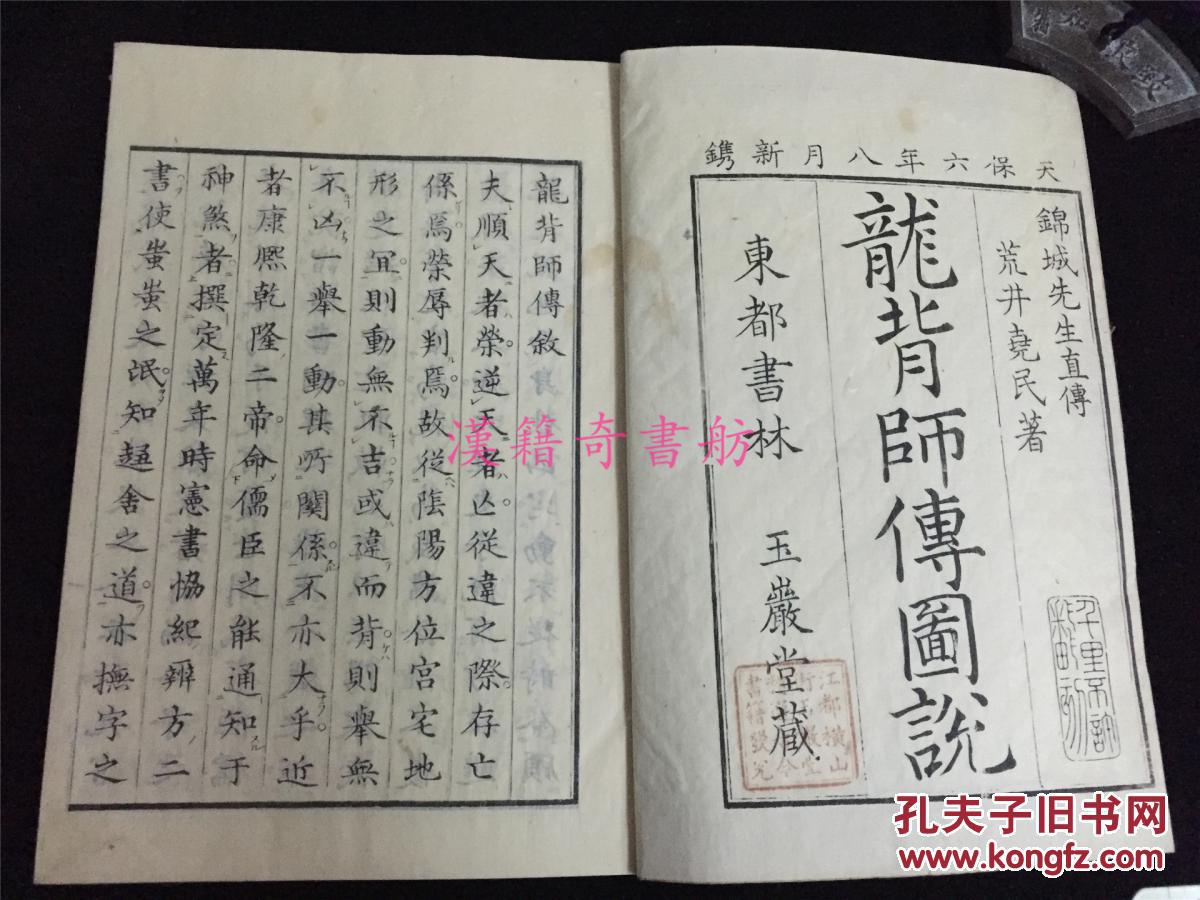 天保六年八月新鐫
錦城先生直傳
荒井堯民著
龍背師傳圖說
東都書林 玉巖堂藏
千里必究
龍背師傳敘
夫順天者榮逆天者亾從違之際存亡
係焉榮辱判焉故從陰陽方位宮宅地
形之冝則動無不吉或違而背則舉無
不凶一舉一動其所關係不亦大乎近
者康熙乾隆二帝命儒臣之能通知于
神煞者撰定萬年時憲書協紀辨方二
書使蚩蚩之氓知趨舍之道亦撫字之
漢籍奇書舫
孔夫子旧书网
www.kongfz.com